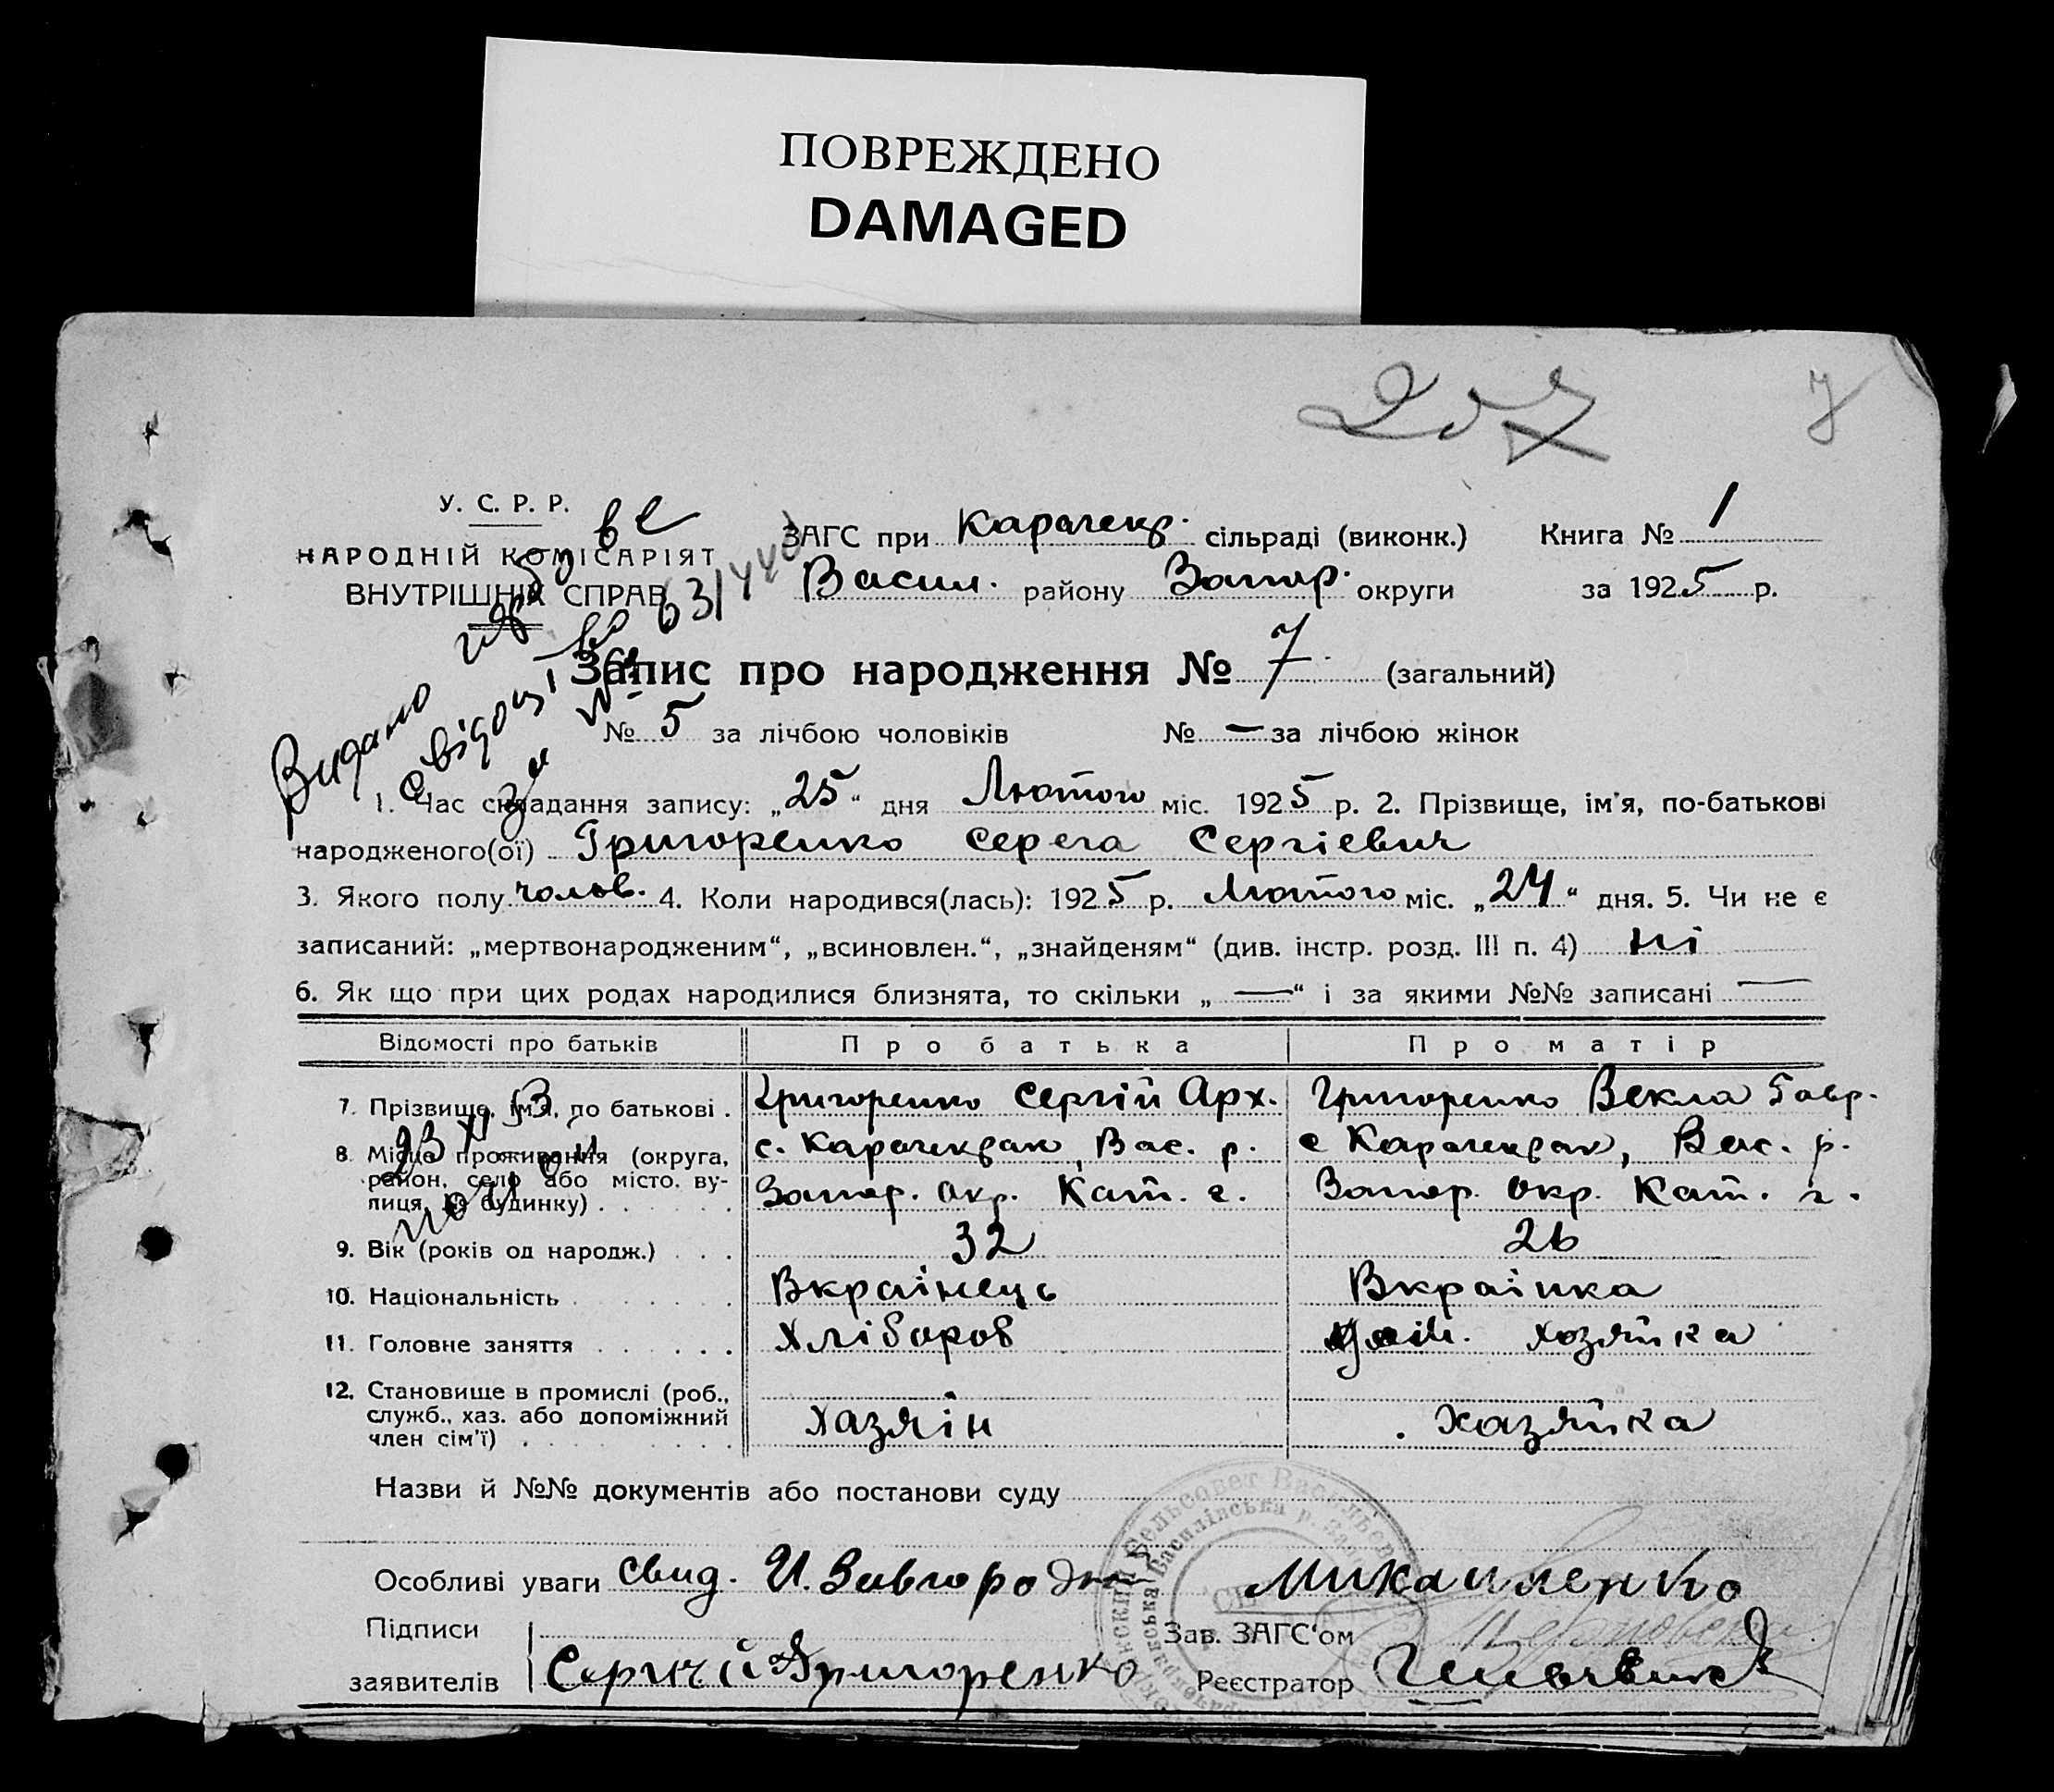 ПОВРЕЖДЕНО
DAMAGED
207
7
У. С. Р. Р.
НАРОДНІЙ КОМІСАРІЯТ
ВНУТРІШНІХ СПРАВ
ЗАГС при Карачекр. сільраді (виконк.) Книга № 1
Васил. району Запор. округи за 1925 р.
Запис про народження № 7 (загальний)
№ 5 за лічбою чоловіків № — за лічбою жінок
Видано
свідоц
1. Час складання запису: „25“ дня Лютого міс. 1925 р. 2. Прізвище, ім'я, по-батькові
народженого(ої) Григоренко Серега Сергієвич
3. Якого полу чолов. 4. Коли народився(лась): 1925 р. Лютого міс. „24“ дня. 5. Чи не є
записаний: „мертвонародженим“, „всиновлен.“, „знайденям“ (див. інстр. розд. III п. 4) ні
6. Як що при цих родах народилися близнята, то скільки „—“ і за якими №№ записані —
Відомості про батьків Про батька Про матір
7. Прізвище, ім'я, по батькові . Григоренко Сергій Арх. Григоренко Векла Гавр.
8. Місце проживання (округа, с. Карачекрак, Вас. р. с Карачекрак, Вас. р.
район, село або місто, ву-
лиця, № будинку) . Запор. окр. Кат. г. Запор. окр. Кат. г.
9. Вік (років од народж.) . . . 32 26
10. Національність Вкраінець Вкраінка
11. Головне заняття Хлібороб хозяйка
12. Становище в промислі (роб.,
служб., хаз. або допоміжний Хазяін Хазяйка
член сім'ї)
Назви й №№ документів або постанови суду
Особливі уваги Свид. И. Завгородн Михайленко
Підписи Зав. ЗАГС'ом
заявителів Сергій Григоренко Реєстратор